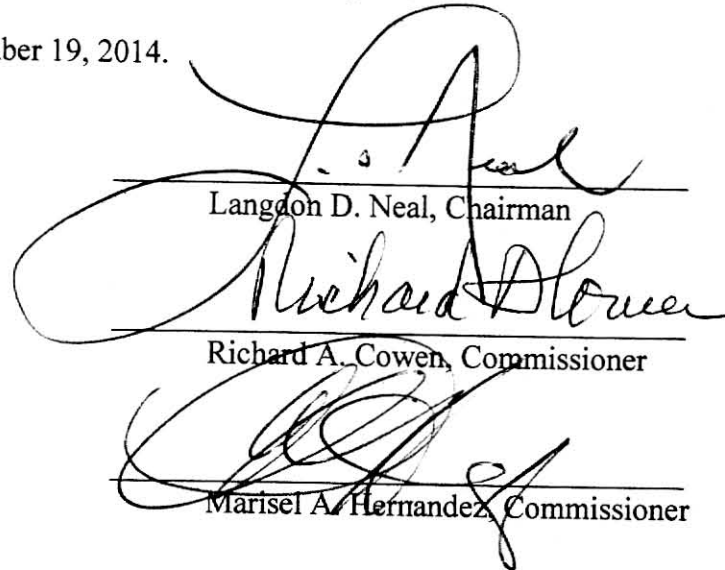 ber 19, 2014.
Neal
Langdon D. Neal, Chairman
Richard A Cowen
Richard A. Cowen, Commissioner
Marisel A. Hernandez, Commissioner